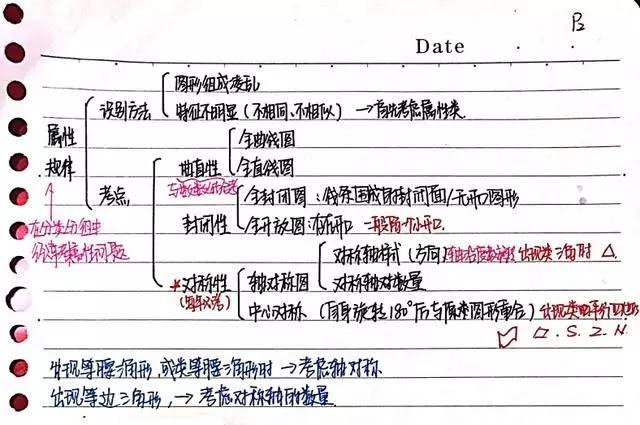 P2
Date
图形组成凌乱
识别方法
特征不明显(不相同、不相似) →首先考虑属性类
属性
规律
全曲线图
曲直性
全直线图
考点
全封闭图:线条围成的封闭面/无开口图形
封闭性
全开放图:有开口 一般留一个小开口
在分类分组中
对称轴样式(方向) 出现类三角时 △
*对称性
轴对称图
对称轴对数量
中心对称 (自身旋转180°后与原来图形重合)
▱.S.Z.N
出现等腰三角形,或类等腰三角形时→考虑轴对称
出现等边三角形,→考虑对称轴的数量